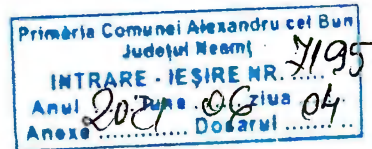 Primăria Comunei Alexandru cel Bun
Județul Neamț
INTRARE - IEȘIRE NR. 7195
Anul 2021 luna 06 ziua 04
Anexe ............ Dosarul ........